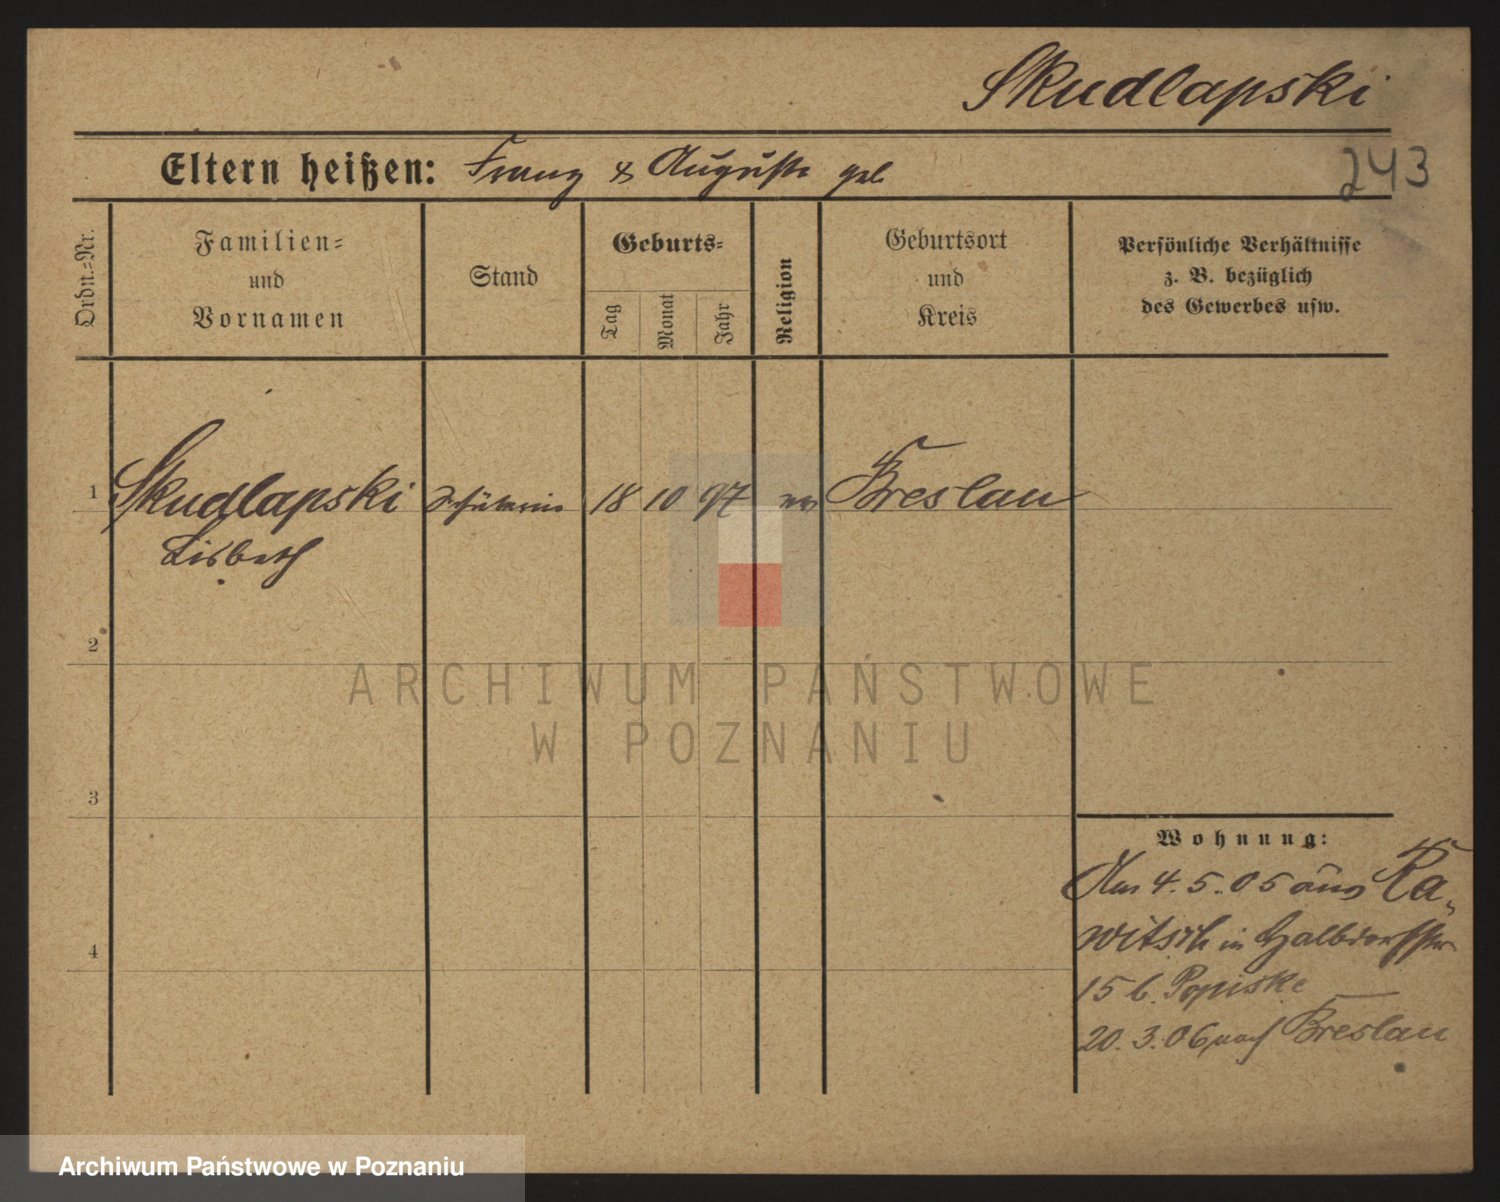 Skudlapski
Eltern heißen: Franz & Auguste geb.
243
Ordn.-Nr.
Familien-
und
Vornamen
Stand
Geburts-
Tag
Monat
Jahr
Religion
Geburtsort
und
Kreis
Persönliche Verhältnisse
z. B. bezüglich
des Gewerbes usw.
1 Skudlapski Schülerin 18 10 97 ev Breslau
Lisbeth
2
ARCHIWUM PAŃSTWOWE
W POZNANIU
3
Wohnung:
Am 4.5.05 aus Ra-
witsch in Halbdorfstr
15 b. Popiske
20.3.06 nach Breslau
4
Archiwum Państwowe w Poznaniu